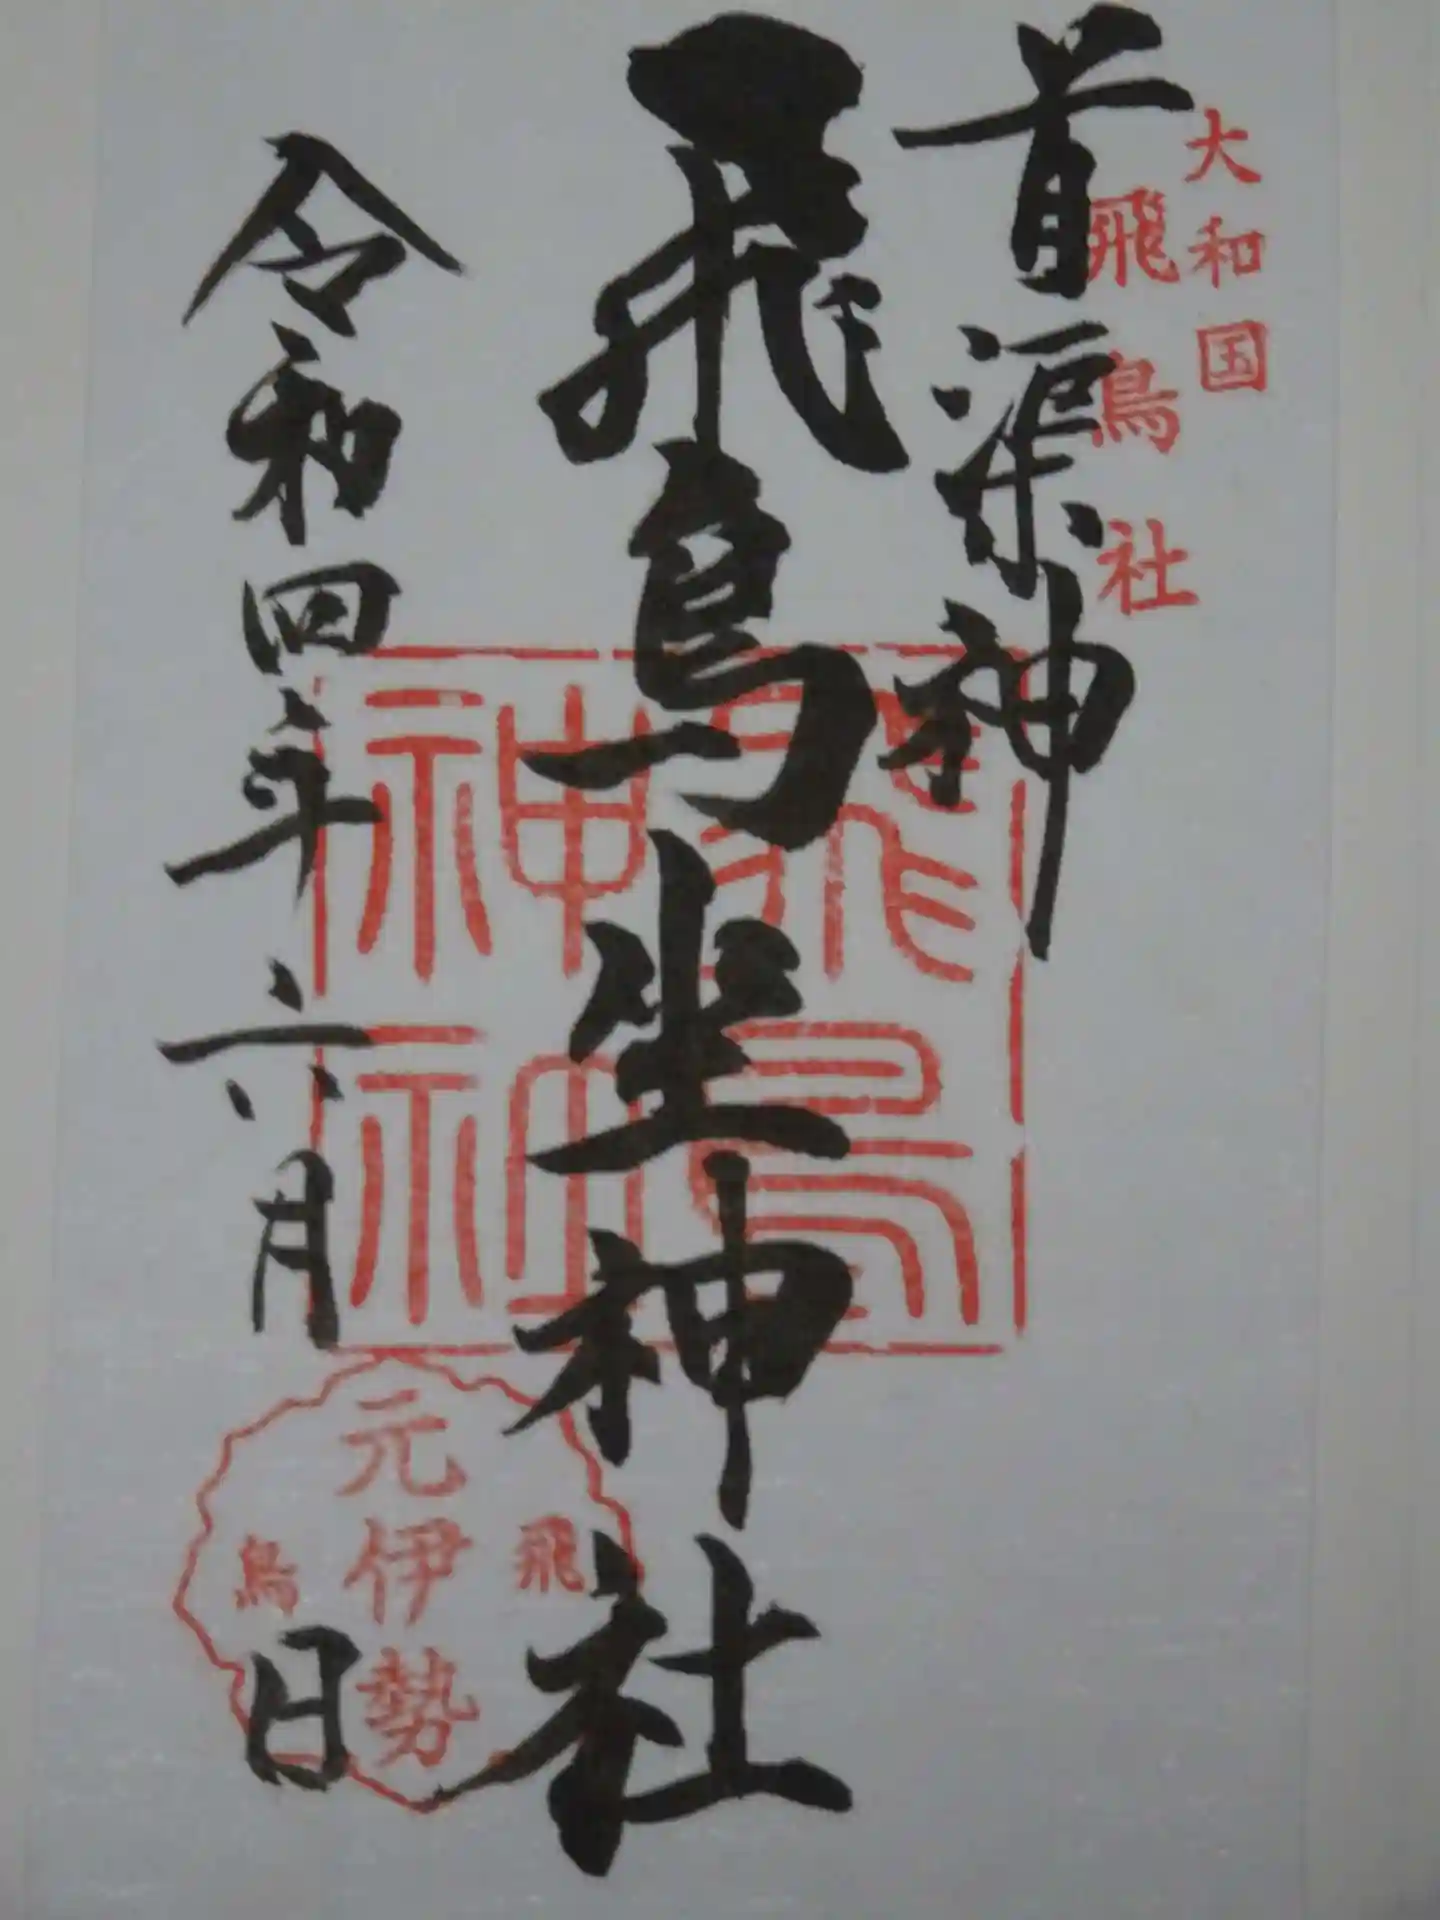 大和国
飛鳥社
首渠神
飛鳥坐神社
飛鳥神社
令和四年六月
日
元伊勢
飛鳥